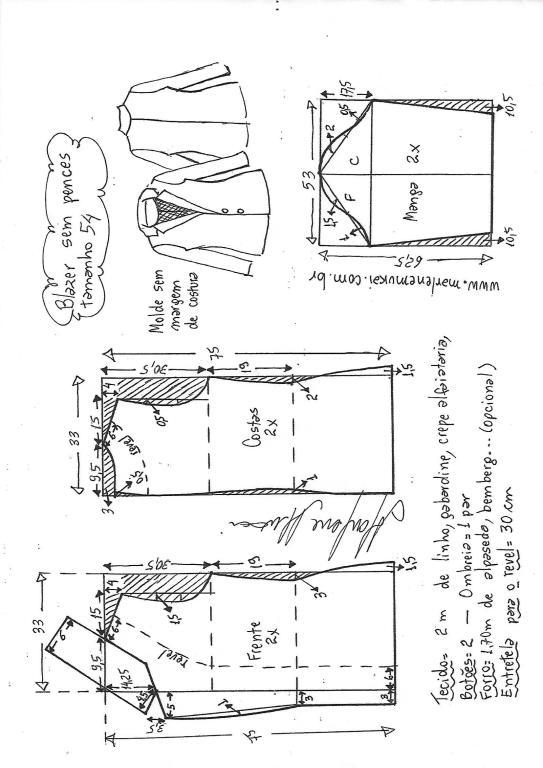 Blazer sem pences
tamanho 54
Molde sem
margem
de costura
53
17,5
2
0,5
1,5
1
F
C
Manga
2x
62,5
10,5
10,5
www.marlenemukai.com.br
33
9,5
15
4
3
0,5
6
revel
0,5
30,5
19
75
Costas
2x
2
1
1,5
33
9,5
15
4
6
6
14,25
3,5
5
1,5
30,5
19
75
revel
Frente
2x
3
1
3
3
6
1,5
Tecido= 2 m de linho, gabardine, crepe alfaiataria,
Botões= 2 — Ombreia= 1 par
Forro= 1,70m de alpaseda, bemberg... (opcional)
Entretela para o revel= 30 cm